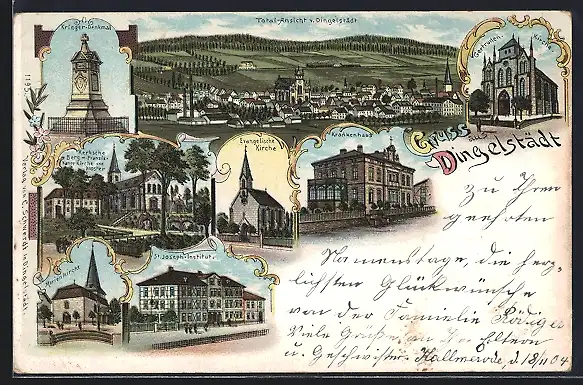 Krieger-Denkmal
Total-Ansicht v. Dingelstädt
Gertruden-Kirche
Kerbsche
Berg m. Franzis-
kaner Kirche und
Kloster
Evangelische
Kirche
Krankenhaus
Gruss aus
Dingelstädt
Marienkirche
St. Joseph-Institut.
Verlag v. C. Schwerdt in Dingelstädt.
zu Ihren
geehrten
Namenstage, die herz-
lichsten Glückwünsche
von der Familie Rödiger
Viele Grüße an Eltern
u. Geschwister. Kallmerode, d. 18/11 04